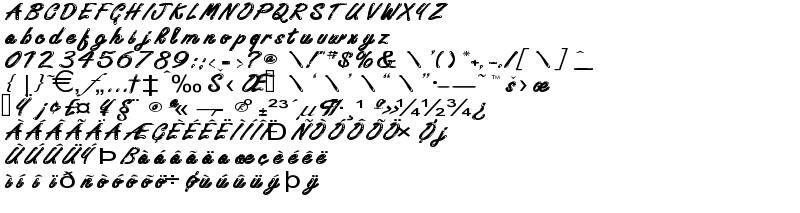 ABCDEFGHIJKLMNOPQRSTUVWXYZ
abcdefghijklmnopqrstuvwxyz
0123456789:;<=>?@ \!"#$%& \'()*+,-./[\]^_
{|}~€‚ƒ„…†‡ˆ‰Š‹Œ \ ‘ ’ “ ” •–—˜™š›œ
Ÿ ¡¢£¤¥§¨©ª«¬­®¯°±²³´µ¶·¸¹º»¼½¾¿
ÀÁÂÃÄÅÆÇÈÉÊËÌÍÎÏÐÑÒÓÔÕÖ×Øij
ÙÚÛÜÝÞßàáâãäåæçèéêë
ìíîïðñòóôõö÷øùúûüýþÿ